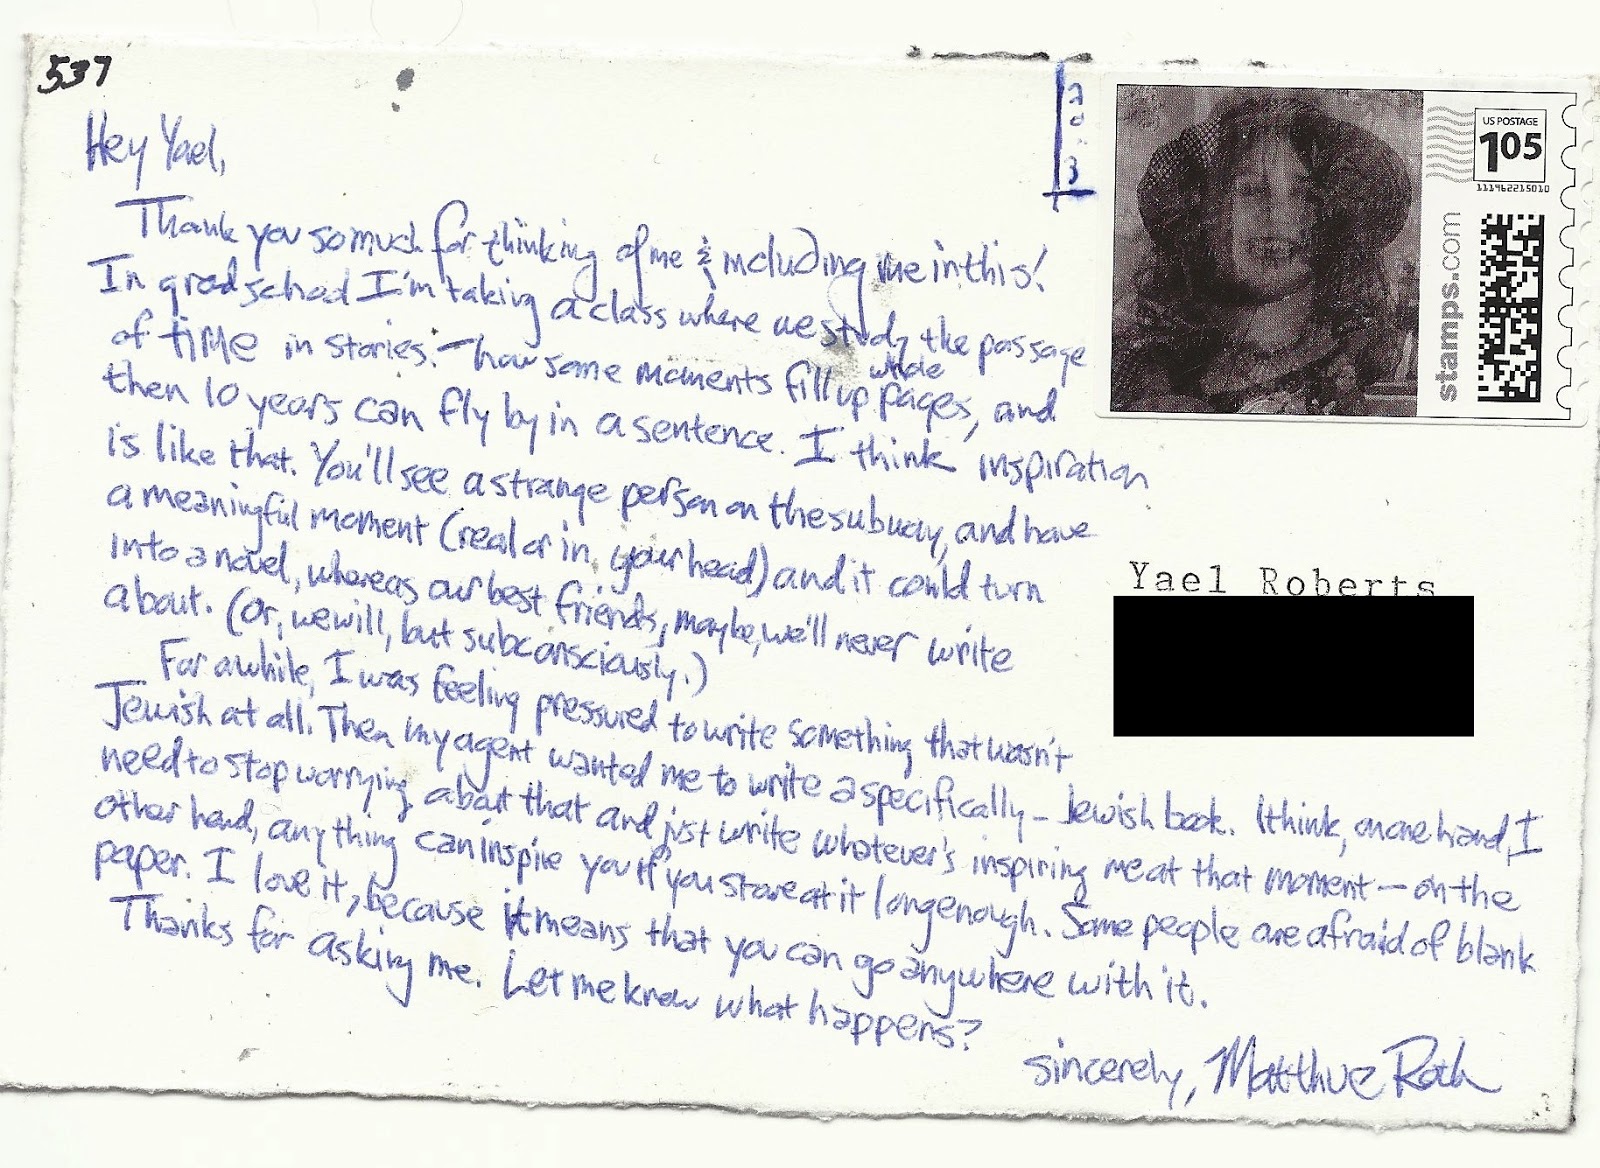 537
Hey Yael,
Thank you so much for thinking of me & including me in this!
In grad school I'm taking a class where we study the passage
of time in stories. — how some moments fill up whole pages, and
then 10 years can fly by in a sentence. I think inspiration
is like that. You'll see a strange person on the subway, and have
a meaningful moment (real or in your head) and it could turn
into a novel, whereas our best friends, maybe, we'll never write
about. (Or, we will, but subconsciously.)
For awhile, I was feeling pressured to write something that wasn't
Jewish at all. Then my agent wanted me to write a specifically-Jewish book. I think, on one hand, I
need to stop worrying about that and just write whatever's inspiring me at that moment — on the
other hand, anything can inspire you if you stare at it long enough. Some people are afraid of blank
paper. I love it, because it means that you can go anywhere with it.
Thanks for asking me. Let me know what happens?
sincerely, Matthue Roth
US POSTAGE
105
111462215010
stamps.com
Yael Roberts